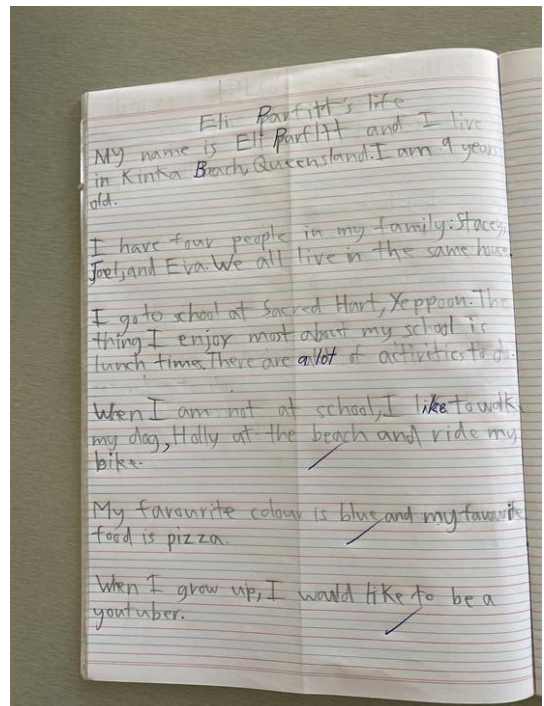 Eli Parfitt's life
My name is Eli Parfitt and I live
in Kinka Beach, Queensland. I am 9 years
old.
I have four people in my family: Stacey,
Joel, and Eva. We all live in the same house.
I go to school at Sacred Hart, Yeppoon. The
thing I enjoy most about my school is
lunch times. There are a lot of activities to do.
Wen I am not at school, I like to walk
my dog, Holly at the beach and ride my
bike.
My favourite colour is blue and my favourite
food is pizza.
When I grow up, I would like to be a
youtuber.